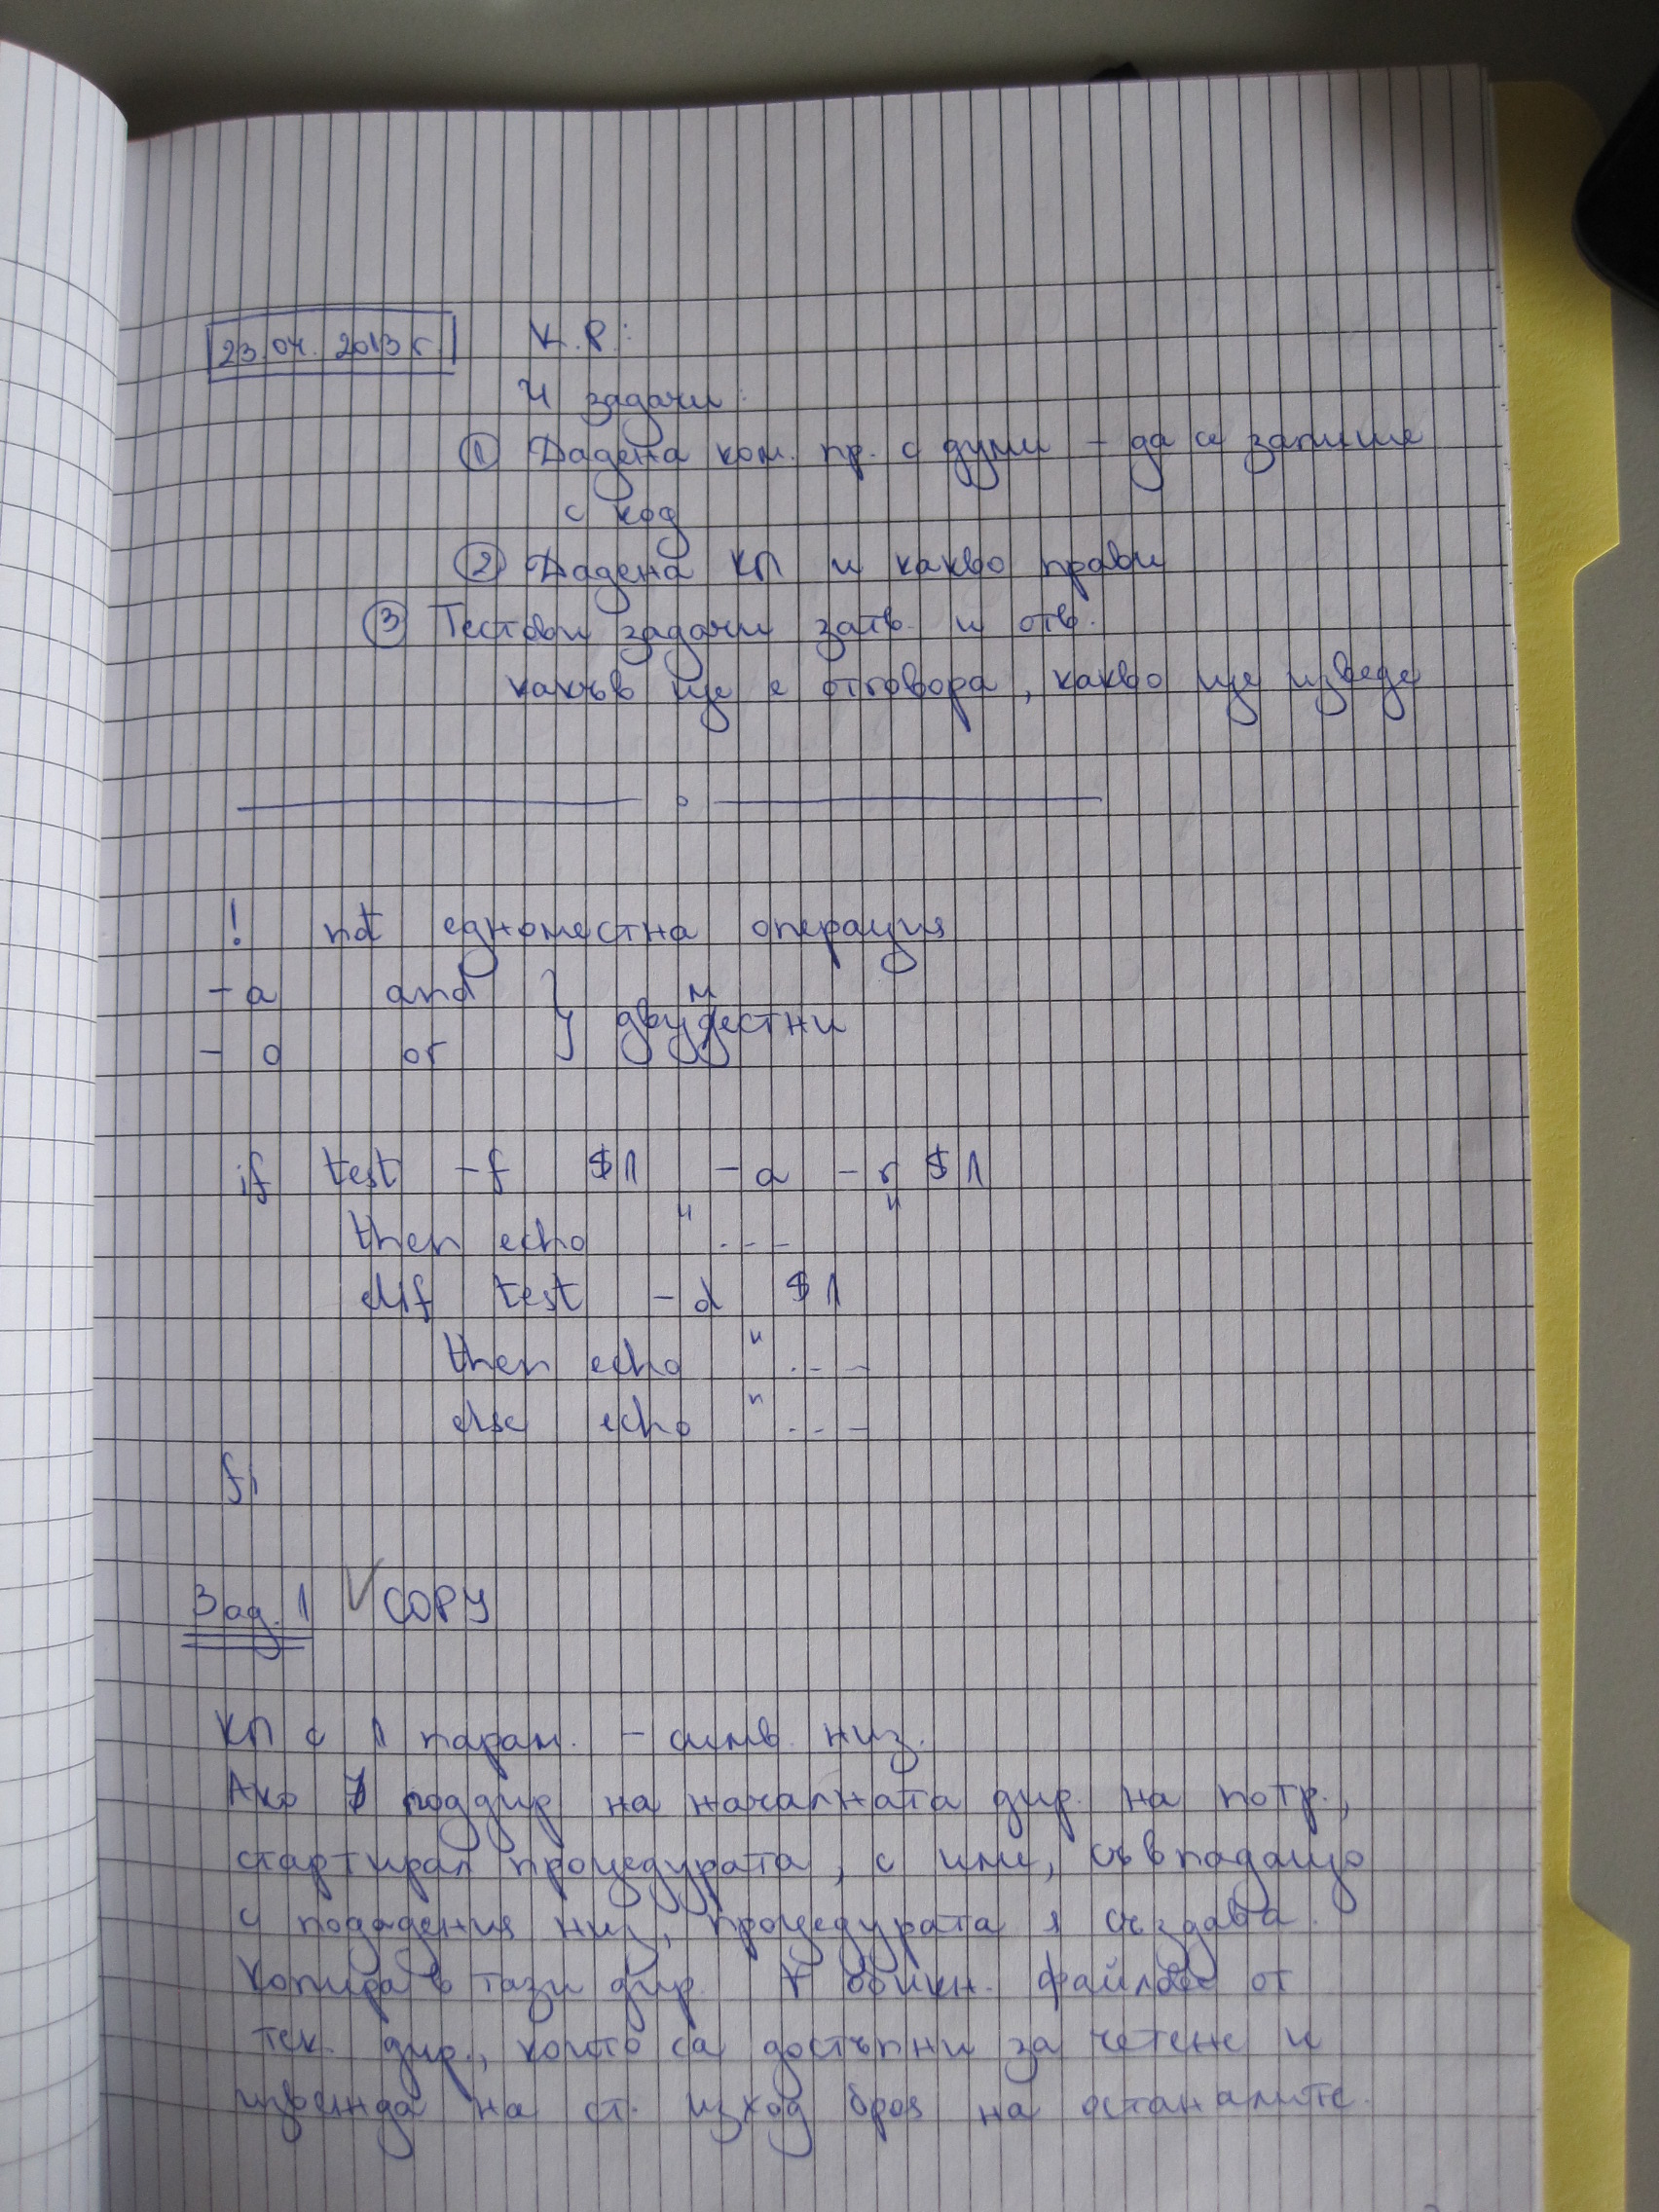 23.04.2013г. К.Р.:
4 задачи:
① Дадена ком. пр. с думи – да се запише
с код
② Дадена КП и какво прави
③ Тестови задачи затв. и отв.
какъв ще е отговора, какво ще изведе
! not едноместна операция
-a and
} двуместни
-o or
if test -f $1 -a -r $1
then echo " --- "
elif test -d $1
then echo " ---
else echo " ---
fi
Зад. 1 ✓ COPY
КП с 1 парам. – симв. низ.
Ако ∄ поддир на началната дир. на потр.,
стартирал процедурата, с име, съвпадащо
с подадения низ, процедурата я създава.
Копира в тази дир. ∀ обикн. файлове от
тек. дир., които са достъпни за четене и
извежда на ст. изход броя на останалите.